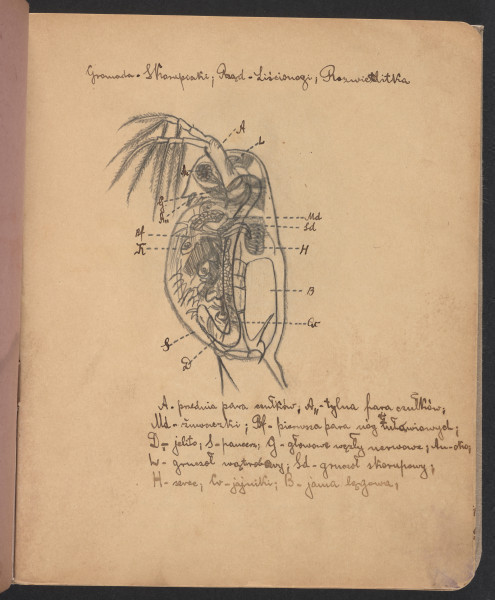 Gromada - Skorupiaki; Rząd - Liścionogi, Rozwielitka
A
L
Au
G
A„
Md
Sd
Bf
K
H
B
Cv
S
D
A - przednia para czułków, A„ - tylna para czułków;
Md - żuwaczki; Bf - pierwsza para nóg tułowiowych;
D - jelito, S - pancerz, G - głowowe węzły nerwowe, Au - oko,
L - gruczoł wątrobowy; Sd - gruczoł skorupowy;
H - serce, Cv - jajniki; B - jama lęgowa,